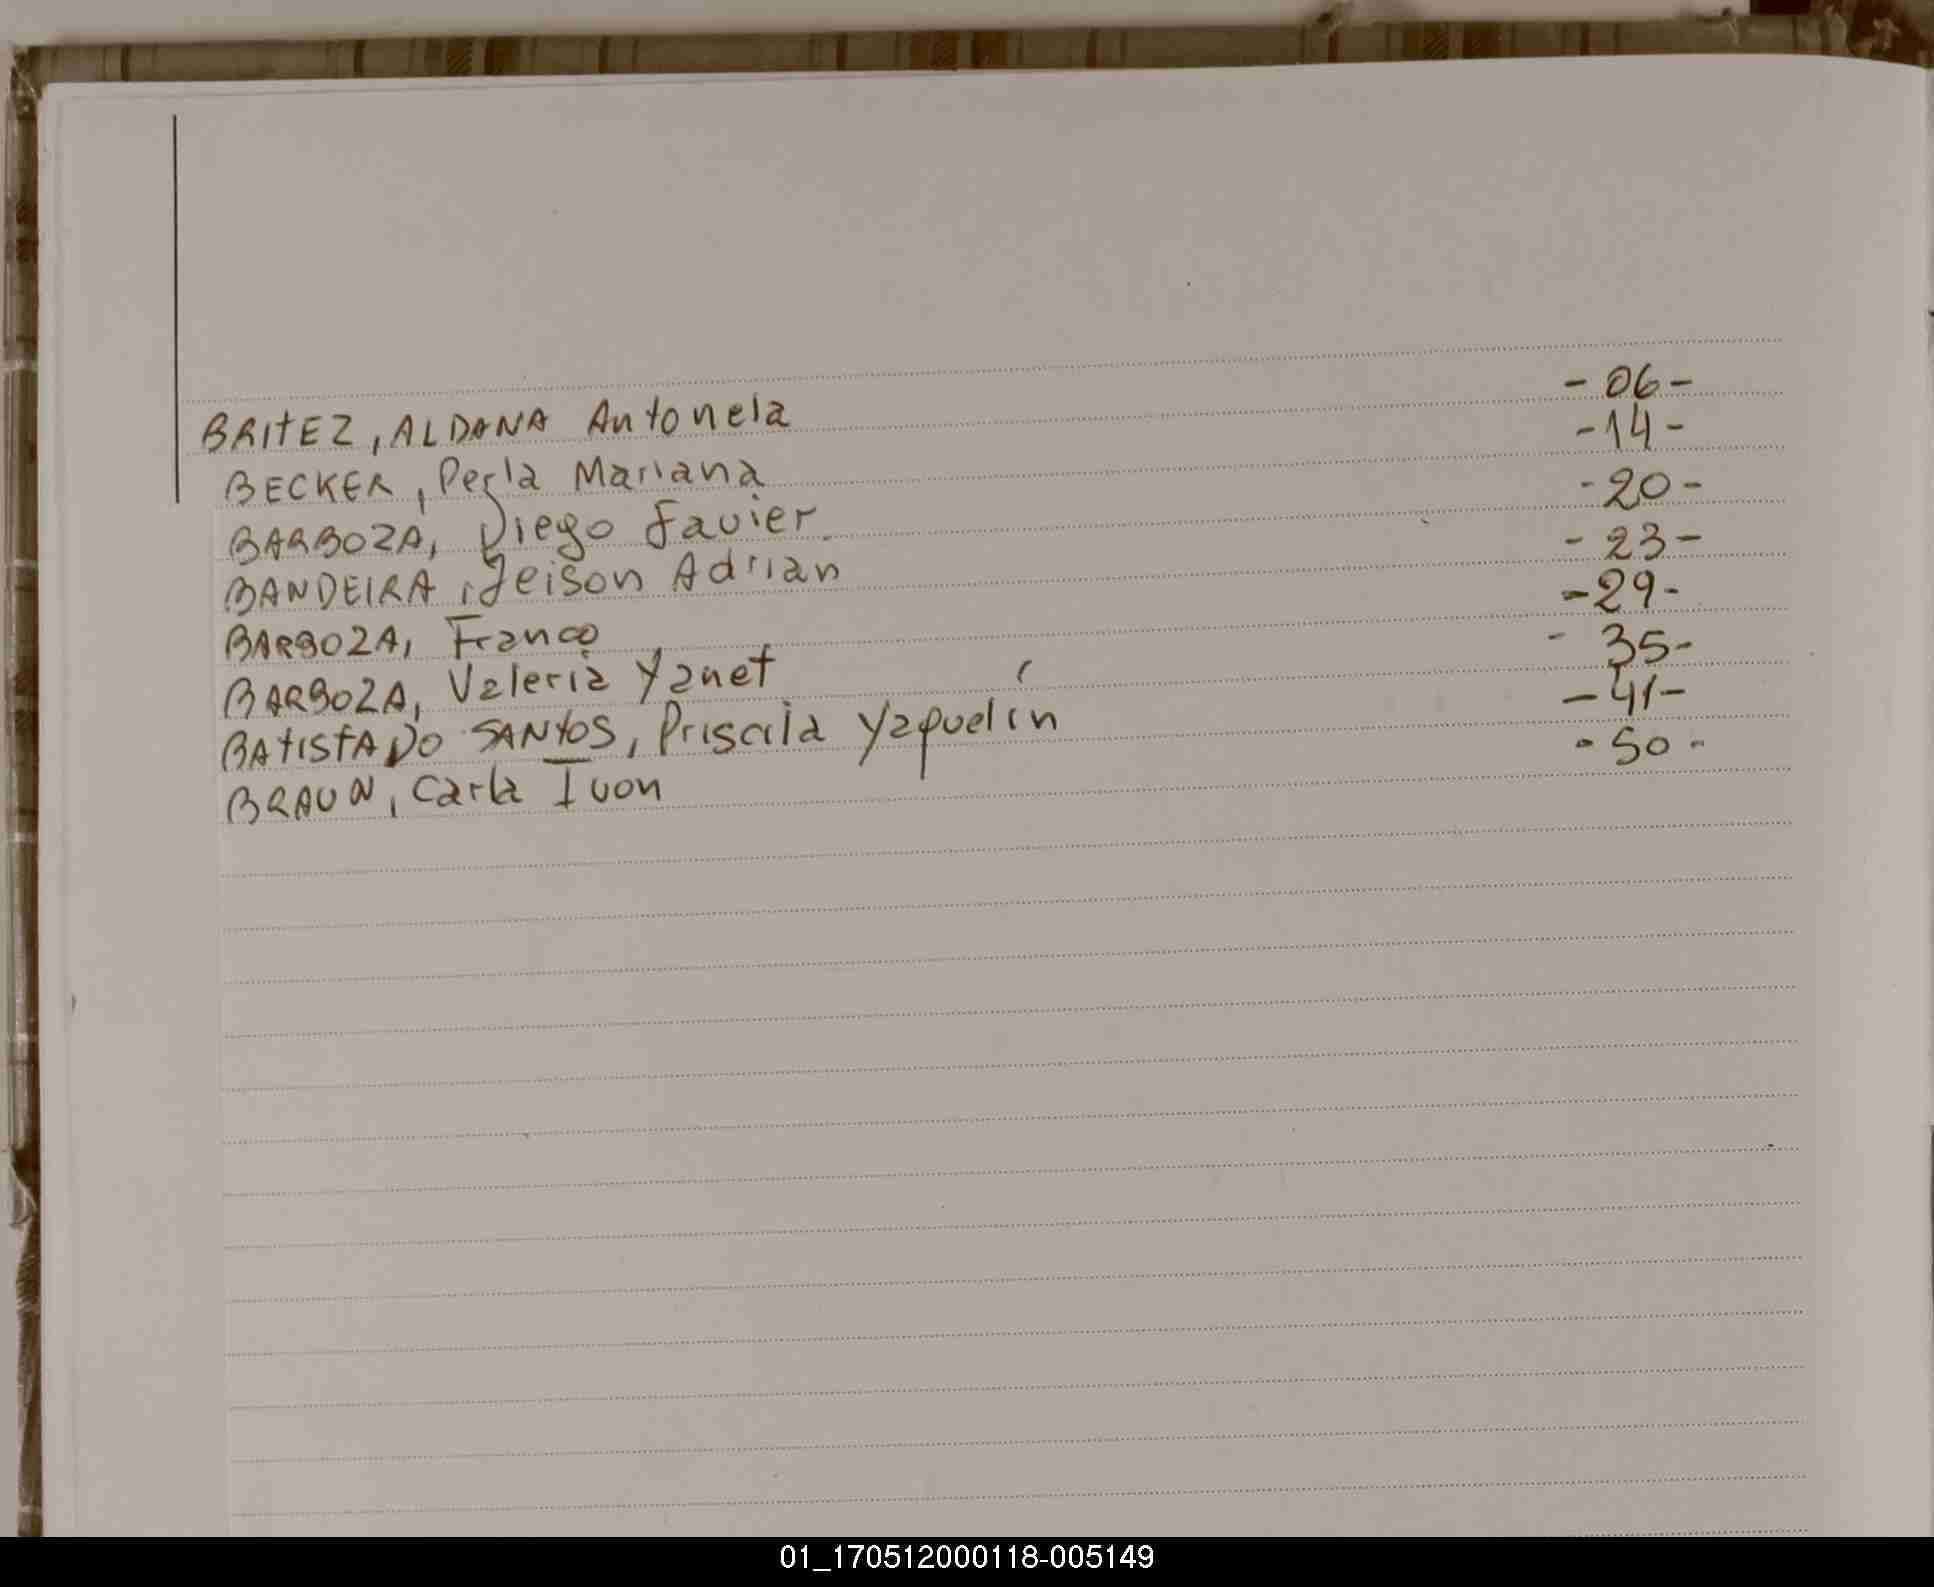 BRITEZ, ALDANA Antonela -06-
BECKER, Perla Mariana -14-
BARBOZA, Diego Javier. -20-
BANDEIRA, Jeison Adrian -23-
BARBOZA, Franco -29-
BARBOZA, Valeria Yanet -35-
BATISTA DO SANTOS, Priscila Yaquelín -41-
BRAUN, Carla Ivon -50-
01_170512000118-005149